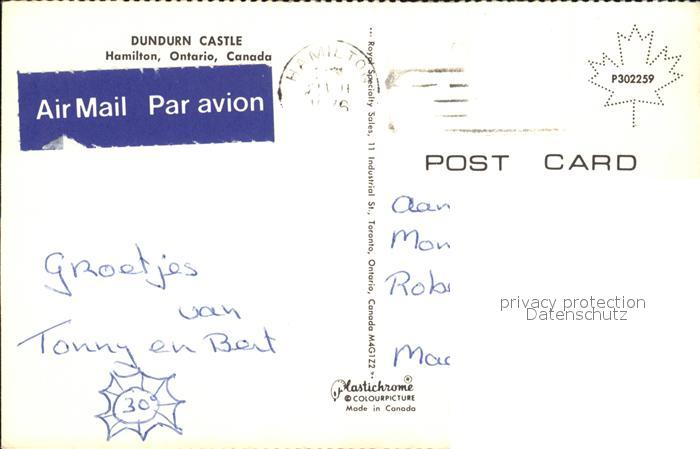 DUNDURN CASTLE
Hamilton, Ontario, Canada
Air Mail Par avion
HAMILTON
Royal Specialty Sales, 11 Industrial St., Toronto, Ontario, Canada M4G1Z2
P302259
POST CARD
Aan
Mon
Robe
Groetjes
van
Tonny en Bert
30°
privacy protection
Datenschutz
Plastichrome®
© COLOURPICTURE
Made in Canada